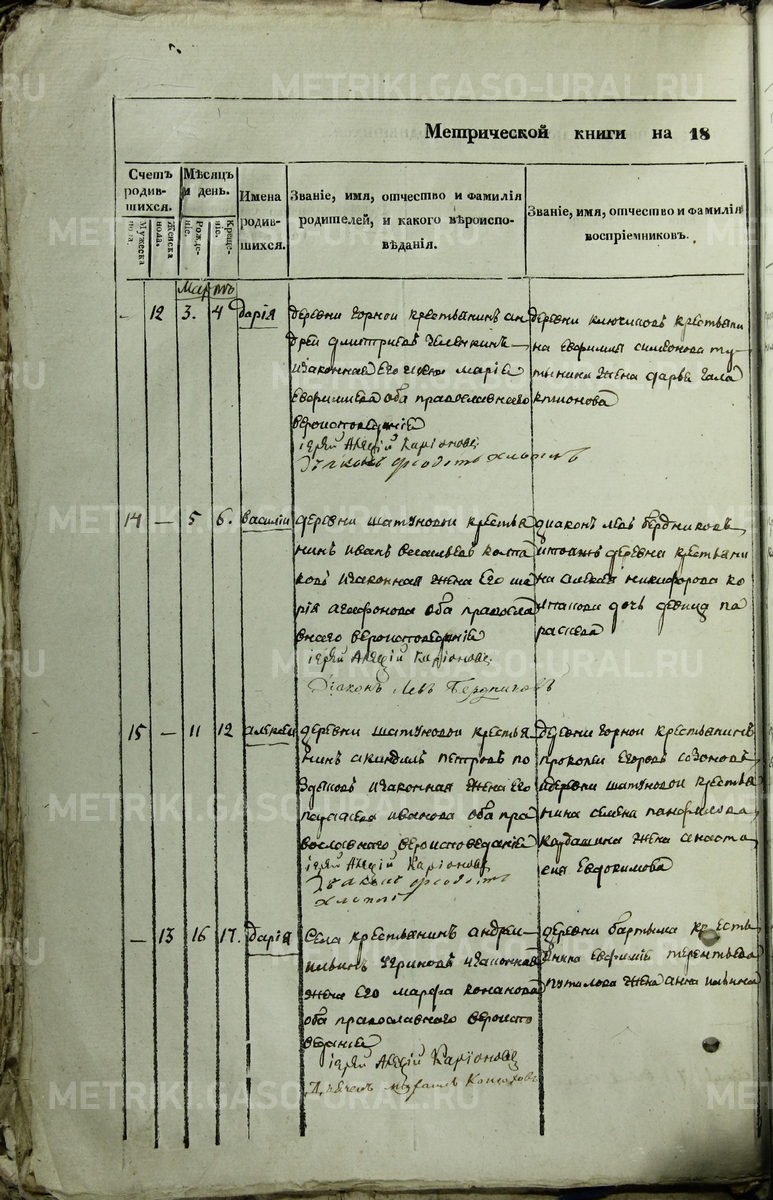 METRIKI.GASO-URAL.RU
Метрической книги на 18
Счетъ родив-шихся.
Мужеска пола.
Женска пола.
Мѣсяцъ и день.
Рожде-ніе.
Креще-ніе.
Имена родив-шихся.
Званіе, имя, отчество и фамилія
родителей, и какого вѣроиспо-
вѣданія.
Званіе, имя, отчество и фамилія
воспріемниковъ.
Мартъ
12 3. 4 дарія
деревни горной крестьянинъ ан
дрей дмитріевъ
изаконная его жена марія
оба православнаго
вероисповеданія
іерей Алексій Каріоновъ
деревни ключиковъ крестьяни
на симеонова
жена дарья гала
ктионова
14 — 5 6. василіи
деревни шатуновой крестья
нинъ иванъ васильевъ колта
ковъ изаконная жена его ма
рія агафонова оба правосла
внаго вероисповеданія
іерей Алексій Каріоновъ
Діаконъ Левъ Бердниковъ
диаконъ левъ бердниковъ
деревни крестьяни
на алексея никифорова ко
лтакова дочь девица па
раскева
15 — 11 12 алексеи
деревни шатуновой крестья
нинъ петровъ по
здеевъ изаконная жена его
иванова оба пра
вославнаго вероисповеданія
іерей Алексій Каріоновъ
деревни горной крестьянинъ
прокопеи егоровъ созоновъ
идеревни шатуновой крестья
нина семена панфилова
кардашина жена анаста
сия евдокимова
— 13 16 17. дарія
Села крестьянинъ андреи
ильинъ изаконная
жена его марфа конанова
оба православнаго вероиспо
веданія
іерей Алексій Каріоновъ
деревни бартыма кресть
янина терентьева
путилова жена анна ильина